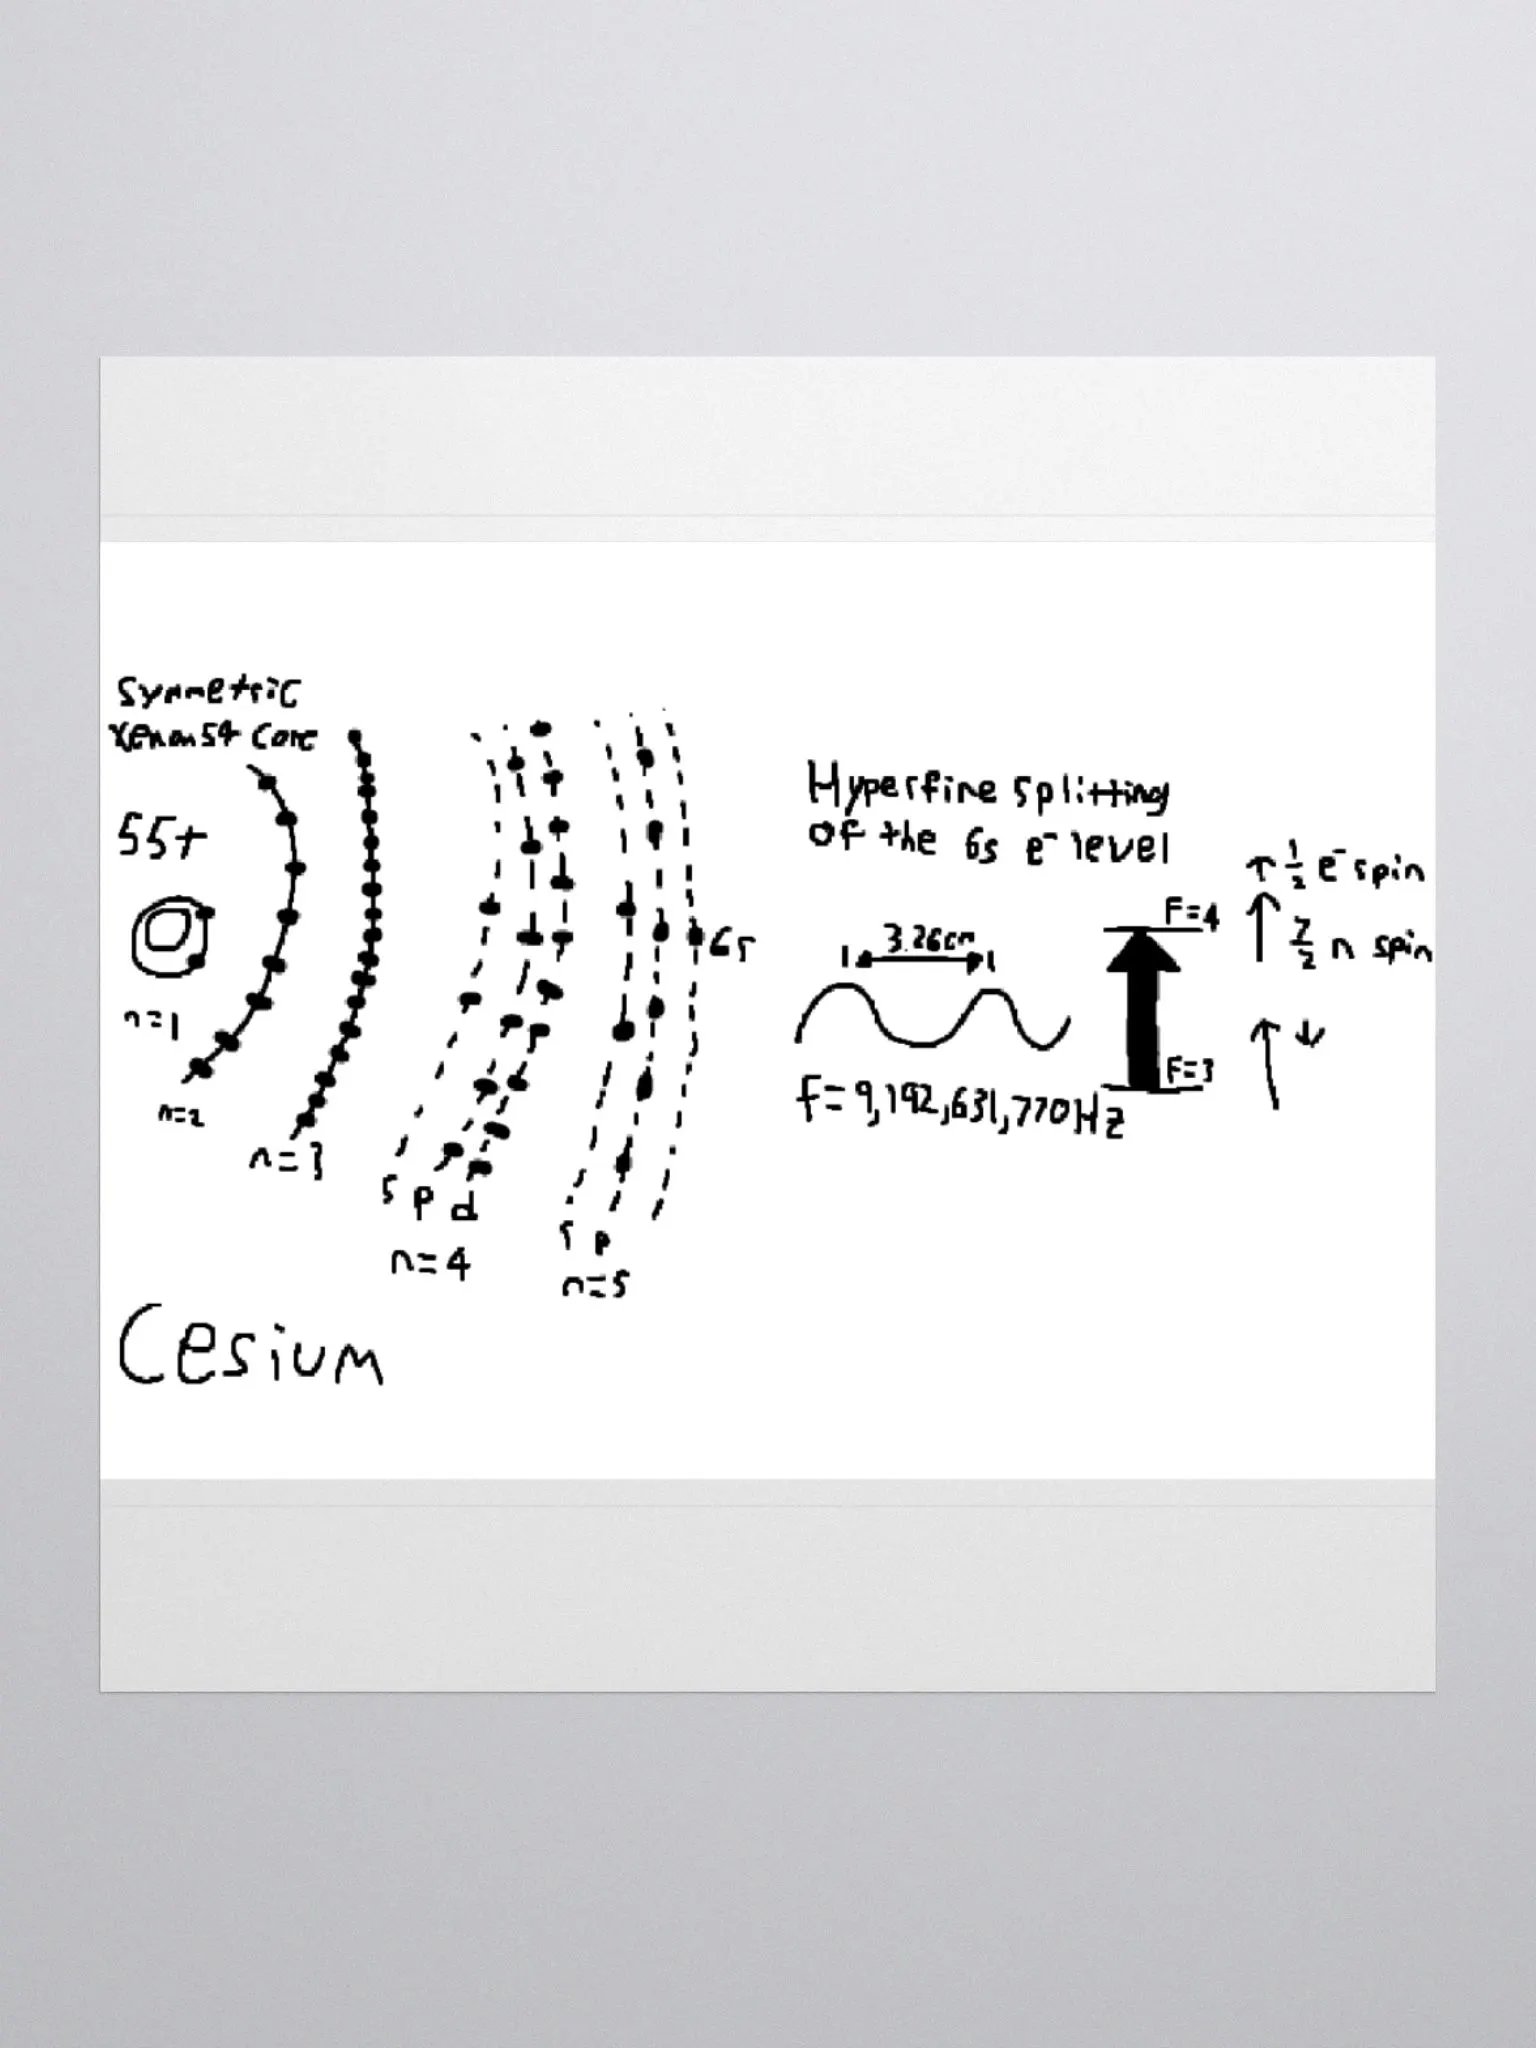 Symmetric
Xenon 54 Core
55+
n=1
n=2
n=3
s p d
n=4
s p
n=5
6s
Cesium
Hyperfine splitting
of the 6s e⁻ level
3.26cm
f=9,192,631,770Hz
F=4
F=3
↑ 1/2 e⁻ spin
↑ 7/2 n spin
↑ ↓